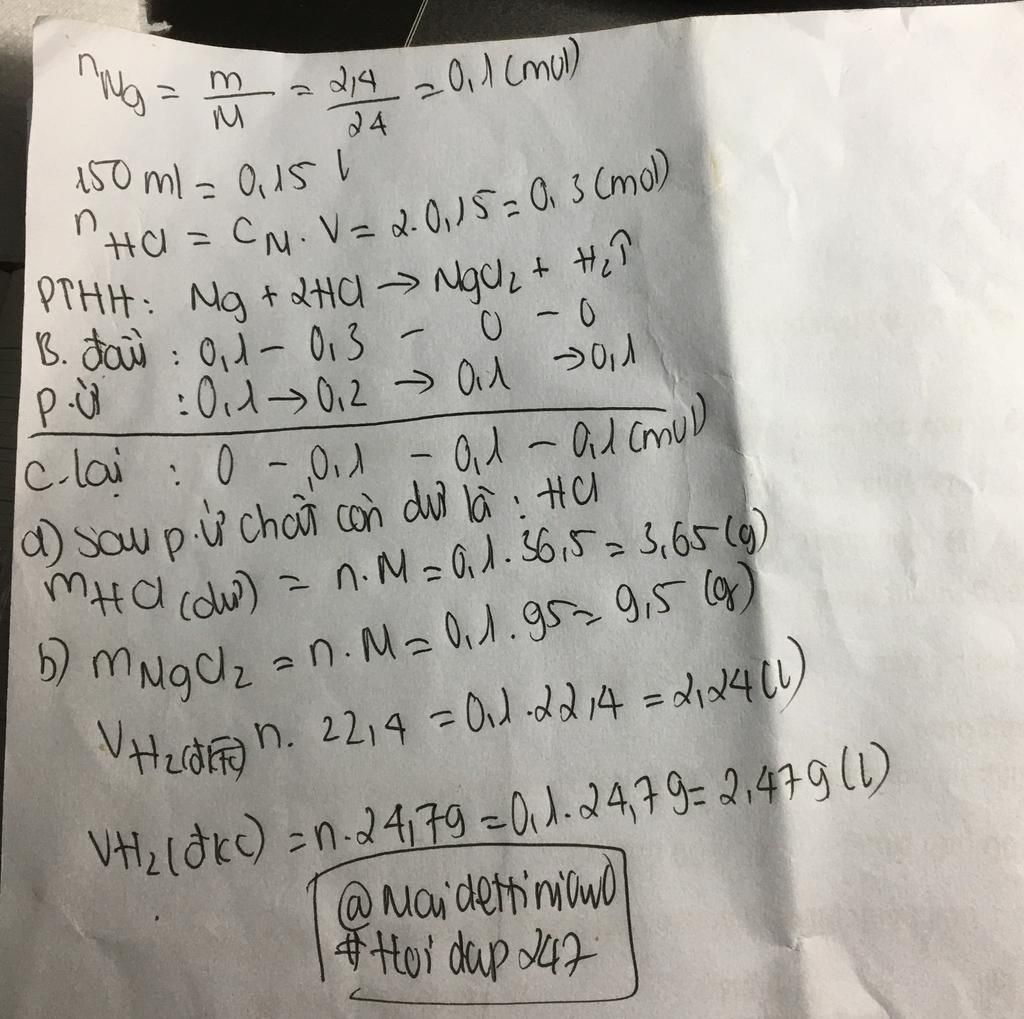 nMg = m/M = 2,4/24 = 0,1 (mol)
150 ml = 0,15 l
nHCl = CM . V = 2. 0,15 = 0,3 (mol)
PTHH: Mg + 2HCl → MgCl2 + H2↑
B. đầu : 0,1 - 0,3 - 0 - 0
P.ứ : 0,1 → 0,2 → 0,1 → 0,1
C.lại : 0 - 0,1 - 0,1 - 0,1 (mol)
a) sau p.ứ chất còn dư là : HCl
mHCl (dư) = n.M = 0,1. 36,5 = 3,65 (g)
b) mMgCl2 = n.M = 0,1. 95 = 9,5 (g)
VH2(đktc) n. 22,4 = 0,1 .22,4 = 2,24 (l)
VH2(đkc) = n.24,79 = 0,1. 24,79 = 2,479 (l)
#Hoi dap 247